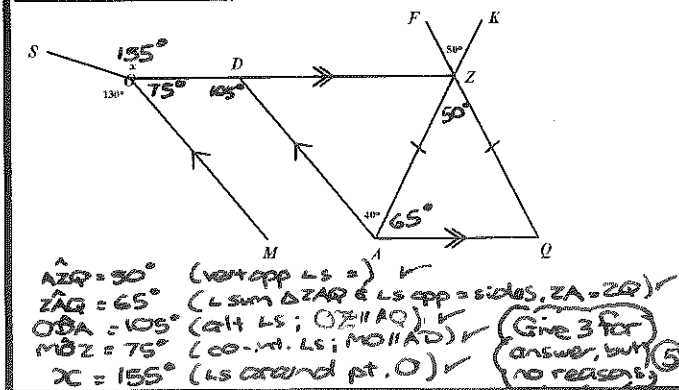 F
K
S
155°
x
50°
D
Z
O
130°
75°
105°
50°
40°
65°
M
A
Q
AẐQ = 50° (vert opp ∠s =) ✓
ZÂQ = 65° (∠ sum ΔZAQ & ∠s opp = sides, ZA = ZQ) ✓
OD̂A = 105° (alt ∠s; OZ∥AQ) ✓
MÔZ = 75° (co-int. ∠s; MO∥AD) ✓
x = 155° (∠s around pt. O) ✓
Give 3 for
answer, but
no reasons,
5